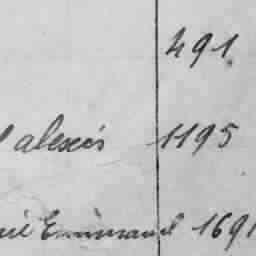 491
alexis 1195
Emmanuel 1691